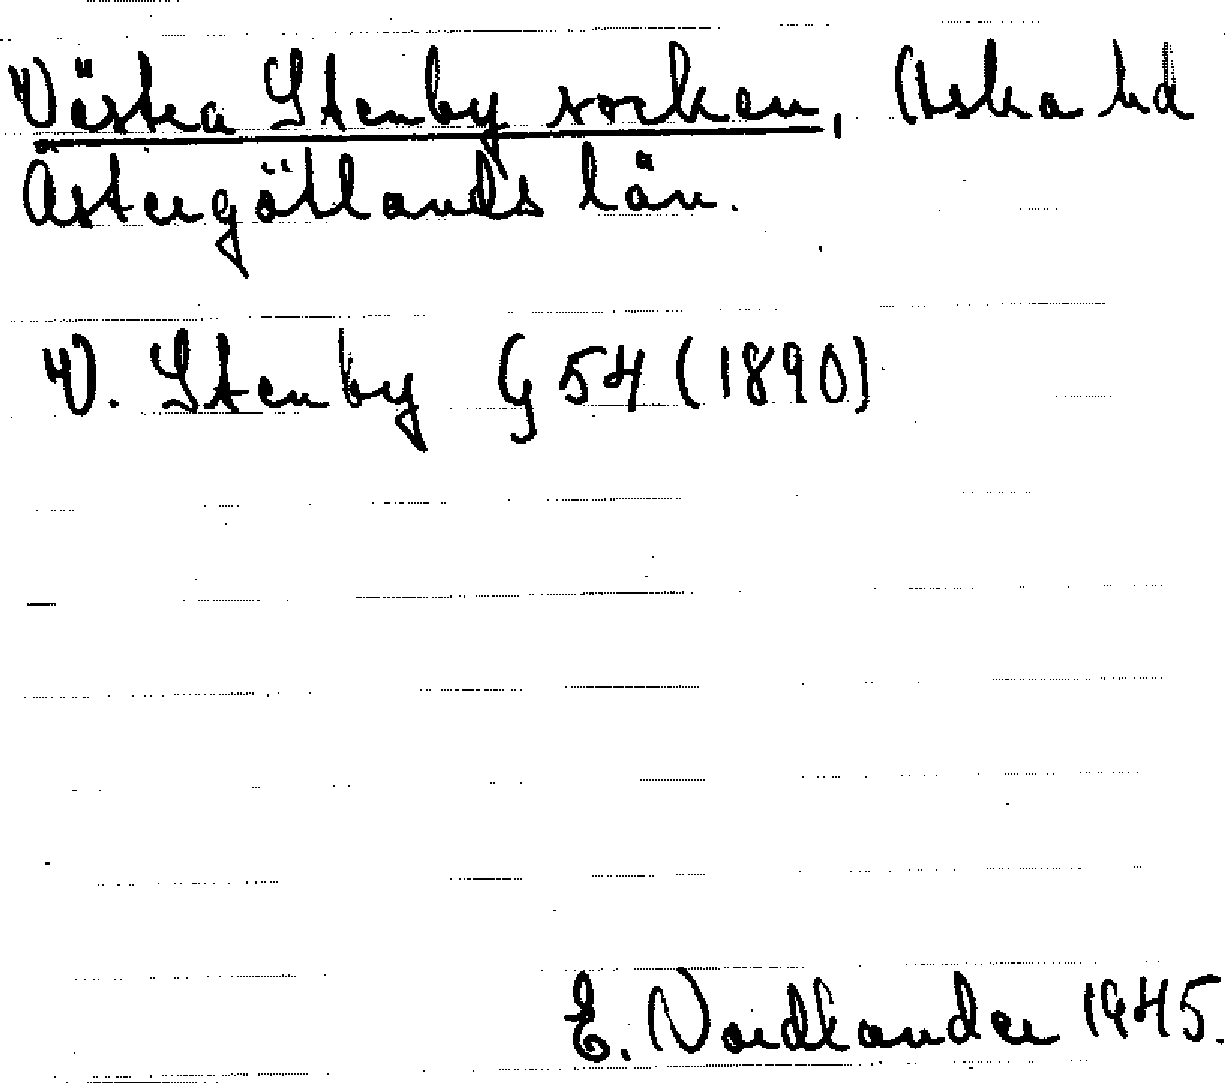 Västra Stenby socken, Aska hd
Östergötlands län.
V. Stenby G 54 (1890)
E. Nordlander 1945.